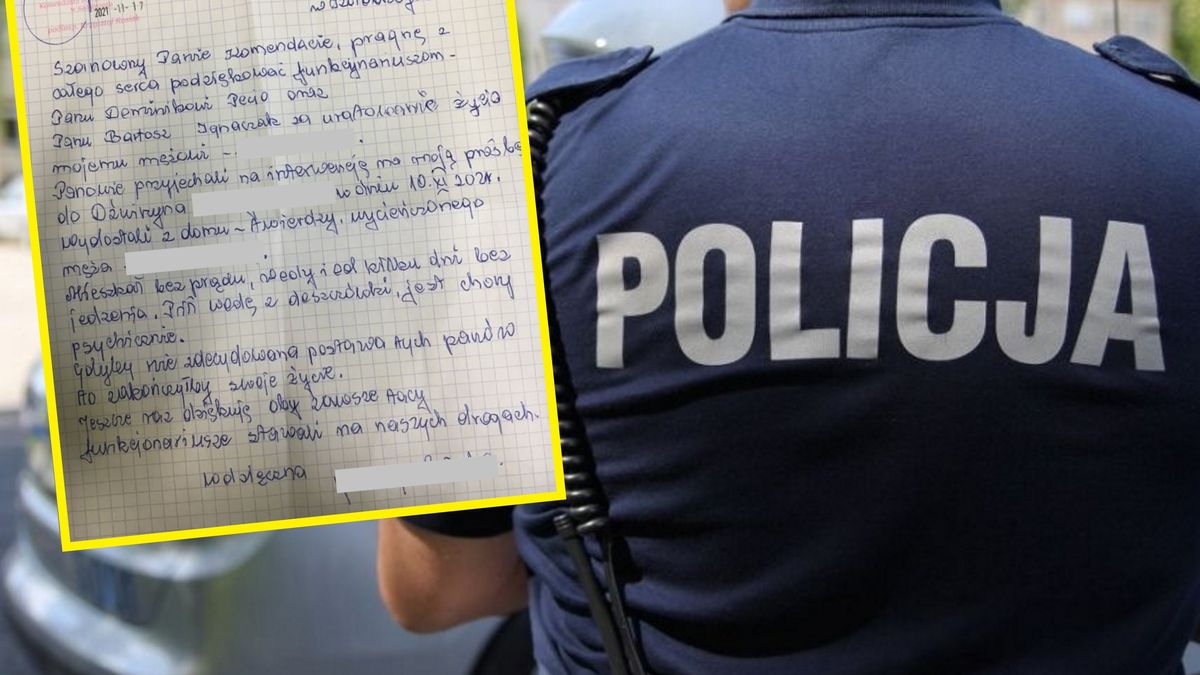 2021 -11- 17
Szanowny Panie Komendacie, pragnę z
całego serca podziękować funkcjnariuszom -
Panu Dominikowi Pego oraz
Panu Bartosz Ignaczak za uratowanie życia
mojemu mężowi -
Panowie przyjechali na interwencję na moją prośbę
do Dźwirzyna w dniu 10.XI 2021r.
wydostali z domu - twierdzy, wycieńczonego
męża
Mieszkał bez prądu, wody i od kilku dni bez
jedzenia. Pił wodę z deszczówki, jest chory
psychicznie.
Gdyby nie zdecydowana postawa tych panów
to zakończyłby swoje życie.
Jeszcze raz dziękuję oby zawsze tacy
funkcjonariusze stawali na naszych drogach.
wdzięczna
POLICJA